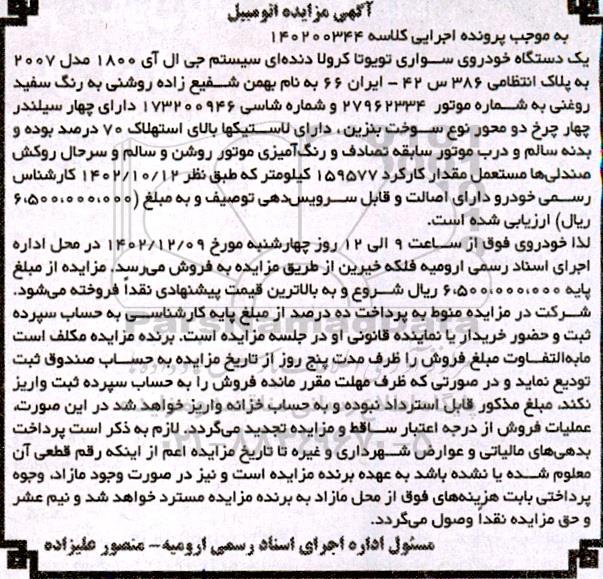 آگهی مزایده اتومبیل
به موجب پرونده اجرایی کلاسه ۱۴۰۲۰۰۳۴۴
یک دستگاه خودروی سواری تویوتا کرولا دنده‌ای سیستم جی ال آی ۱۸۰۰ مدل ۲۰۰۷
به پلاک انتظامی ۳۸۶ س ۴۲ - ایران ۶۶ به نام بهمن شفیع زاده روشنی به رنگ سفید
روغنی به شماره موتور ۲۷۹۶۲۳۳۴ و شماره شاسی ۱۷۳۲۰۰۹۴۶ دارای چهار سیلندر
چهار چرخ دو محور نوع سوخت بنزین، دارای لاستیکها بالای استهلاک ۷۰ درصد بوده و
بدنه سالم و درب موتور سابقه تصادف و رنگ‌آمیزی موتور روشن و سالم و سرحال روکش
صندلی‌ها مستعمل مقدار کارکرد ۱۵۹۵۷۷ کیلومتر که طبق نظر ۱۴۰۲/۱۰/۱۲ کارشناس
رسمی خودرو دارای اصالت و قابل سرویس‌دهی توصیف و به مبلغ (۶،۵۰۰،۰۰۰،۰۰۰
ریال) ارزیابی شده است.
لذا خودروی فوق از ساعت ۹ الی ۱۲ روز چهارشنبه مورخ ۱۴۰۲/۱۲/۰۹ در محل اداره
اجرای اسناد رسمی ارومیه فلکه خیرین از طریق مزایده به فروش می‌رسد. مزایده از مبلغ
پایه ۶،۵۰۰،۰۰۰،۰۰۰ ریال شروع و به بالاترین قیمت پیشنهادی نقداً فروخته می‌شود.
شرکت در مزایده منوط به پرداخت ده درصد از مبلغ پایه کارشناسی به حساب سپرده
ثبت و حضور خریدار یا نماینده قانونی او در جلسه مزایده است. برنده مزایده مکلف است
مابه‌التفاوت مبلغ فروش را ظرف مدت پنج روز از تاریخ مزایده به حساب صندوق ثبت
تودیع نماید و در صورتی که ظرف مهلت مقرر مانده فروش را به حساب سپرده ثبت واریز
نکند، مبلغ مذکور قابل استرداد نبوده و به حساب خزانه واریز خواهد شد در این صورت،
عملیات فروش از درجه اعتبار ساقط و مزایده تجدید می‌گردد. لازم به ذکر است پرداخت
بدهی‌های مالیاتی و عوارض شهرداری و غیره تا تاریخ مزایده اعم از اینکه رقم قطعی آن
معلوم شده یا نشده باشد به عهده برنده مزایده است و نیز در صورت وجود مازاد، وجوه
پرداختی بابت هزینه‌های فوق از محل مازاد به برنده مزایده مسترد خواهد شد و نیم عشر
و حق مزایده نقداً وصول می‌گردد.
مسئول اداره اجرای اسناد رسمی ارومیه- منصور علیزاده
ParsNamadData
۰۲۱-۸۸۳۴۹۶۷۰-۵